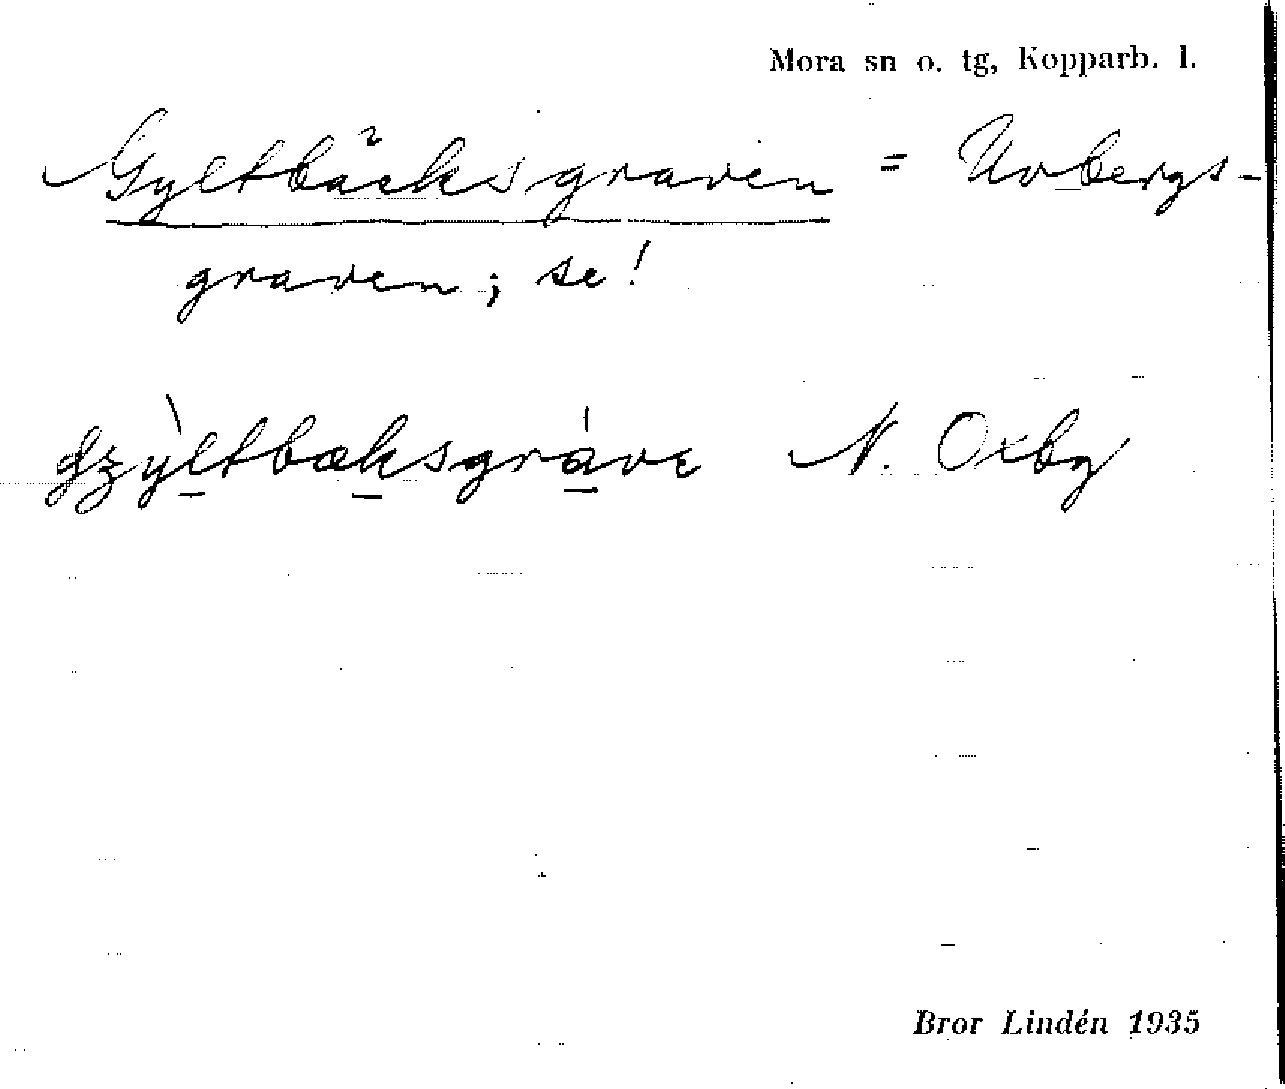 Mora sn o. tg, Kopparb. l.
Gyltbäcksgraven = Uvbergs-
graven; se!
N. Oxbg
Bror Lindén 1935